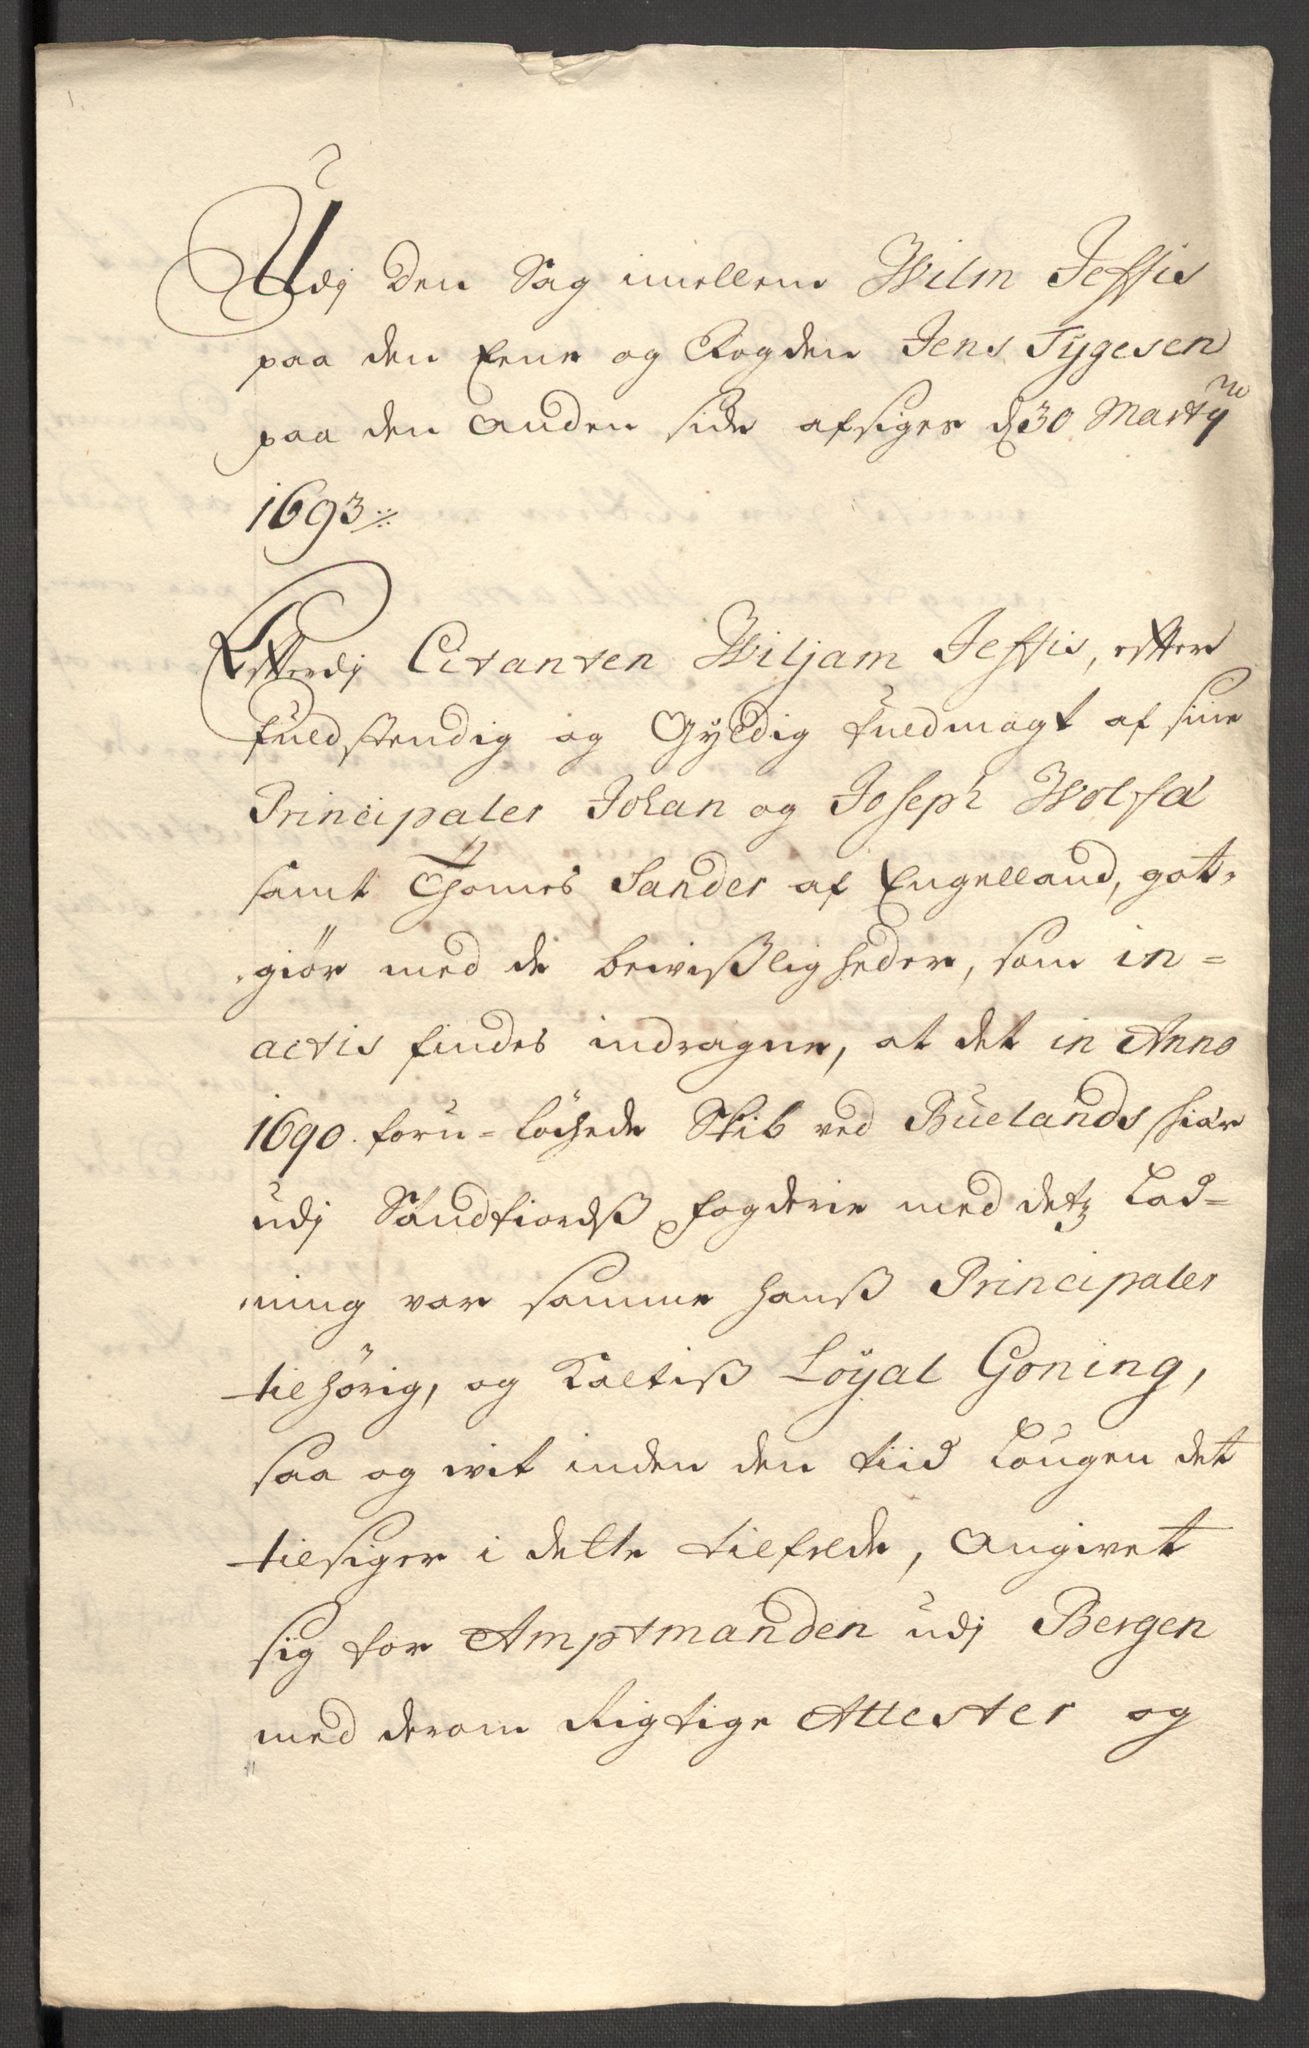 Udj Den Sag imellem Wilm Jeffis
paa den Eene og Fogden Jens Tygesen
paa den Anden side afsiges d 30 Martij
1693
Efterdj Citanten Wiljam Jeffis, efter
fuldstendig og Gyldig fuldmagt af sine
Principaler Johan og Joseph Wolfa
samt Thomes Sander af Engelland, got-
giør med de beviißligheder, som in=
actis findes indragne, at det in Anno
1690. foru=löchede Skib ved Buelands skiær
udj Sündfiordß fogderie med detz Lad=
ning var samme hanß Principaler
tilhörig, og Kaltiß Löyal Goning,
saa og vit inden den tiid Lougen det
tilsiger i dette tilfelde, Angivet
sig for Amptmanden udj Bergen
med derom Rigtige Attester og